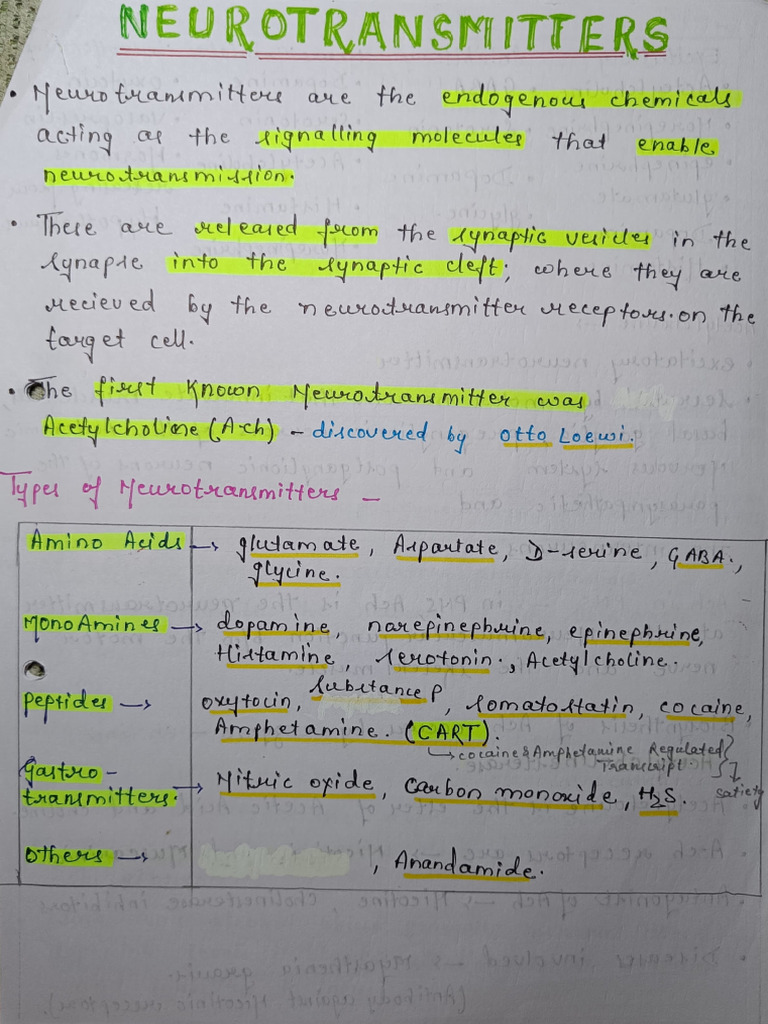 NEUROTRANSMITTERS
• Neurotransmitters are the endogenous chemicals
acting as the signalling molecules that enable
neurotransmission.
• These are released from the synaptic vesicles in the
synapse into the synaptic cleft; where they are
recieved by the neurotransmitter receptors. on the
target cell.
• The first known Neurotransmitter was
Acetylcholine (A·ch) - discovered by Otto Loewi.
Types of Neurotransmitters -
Amino Acids → glutamate, Aspartate, D-serine, GABA.,
glycine.
MonoAmines → dopamine, narepinephrine, epinephrine,
Histamine, serotonin., Acetylcholine.
peptides → oxytocin, Substance P, somatostatin, cocaine,
Amphetamine. (CART).
↳ cocaine & Amphetamine Regulated
Transcript } satiety
gastro-
transmitters. → Nitric oxide, Carbon monoxide, H2S.
others → , Anandamide.